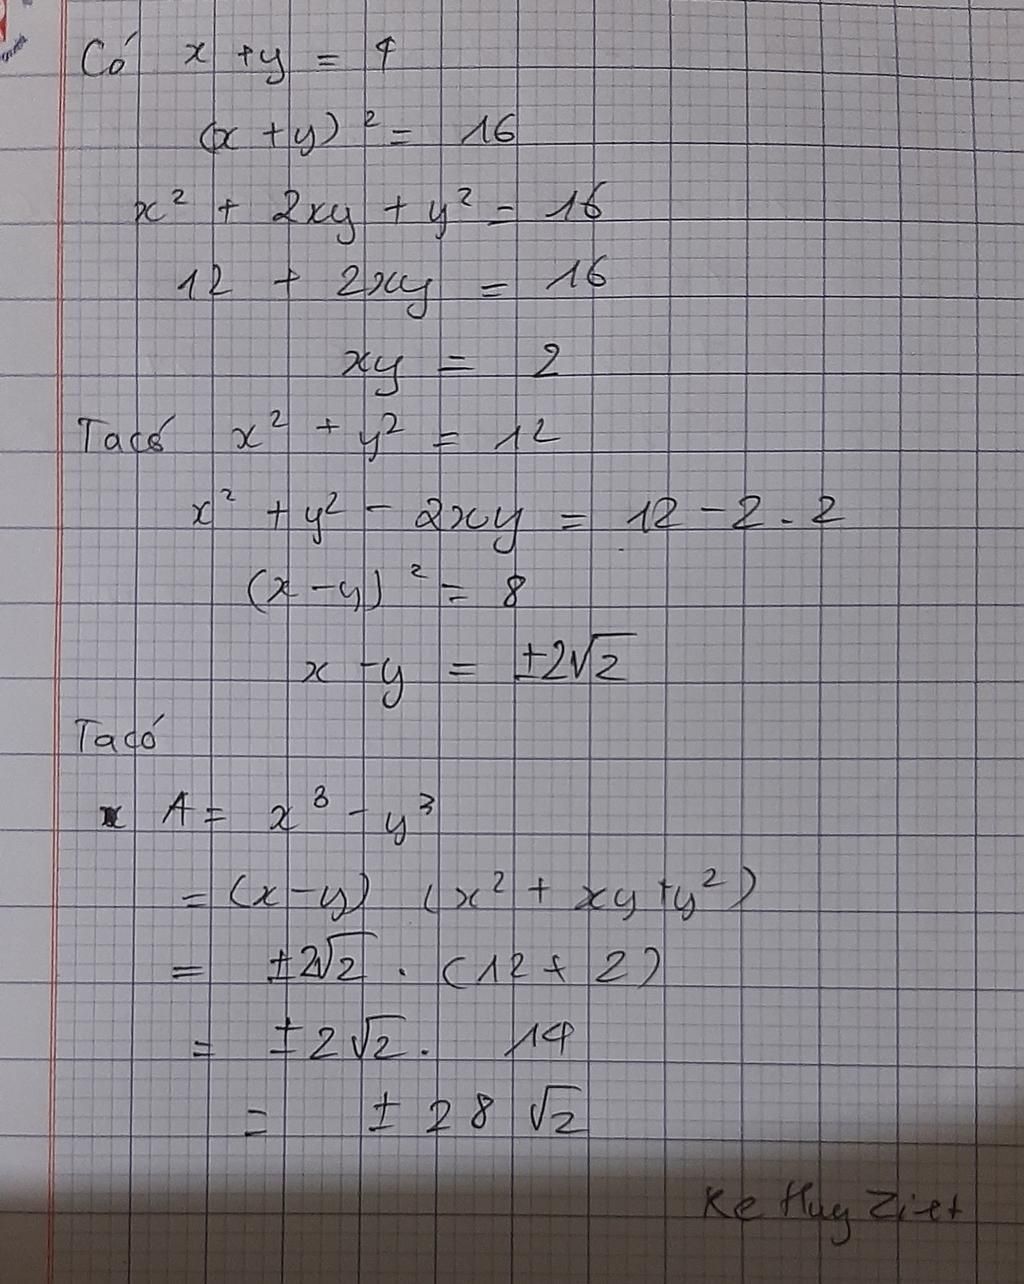 Có x + y = 4
(x + y)² = 16
x² + 2xy + y² = 16
12 + 2xy = 16
xy = 2
Ta có x² + y² = 12
x² + y² - 2xy = 12 - 2 . 2
(x - y)² = 8
x - y = ±2√2
Ta có
A = x³ - y³
= (x - y) (x² + xy + y²)
= ±2√2 . (12 + 2)
= ±2√2 . 14
= ± 28 √2
Ke Huy Ziet